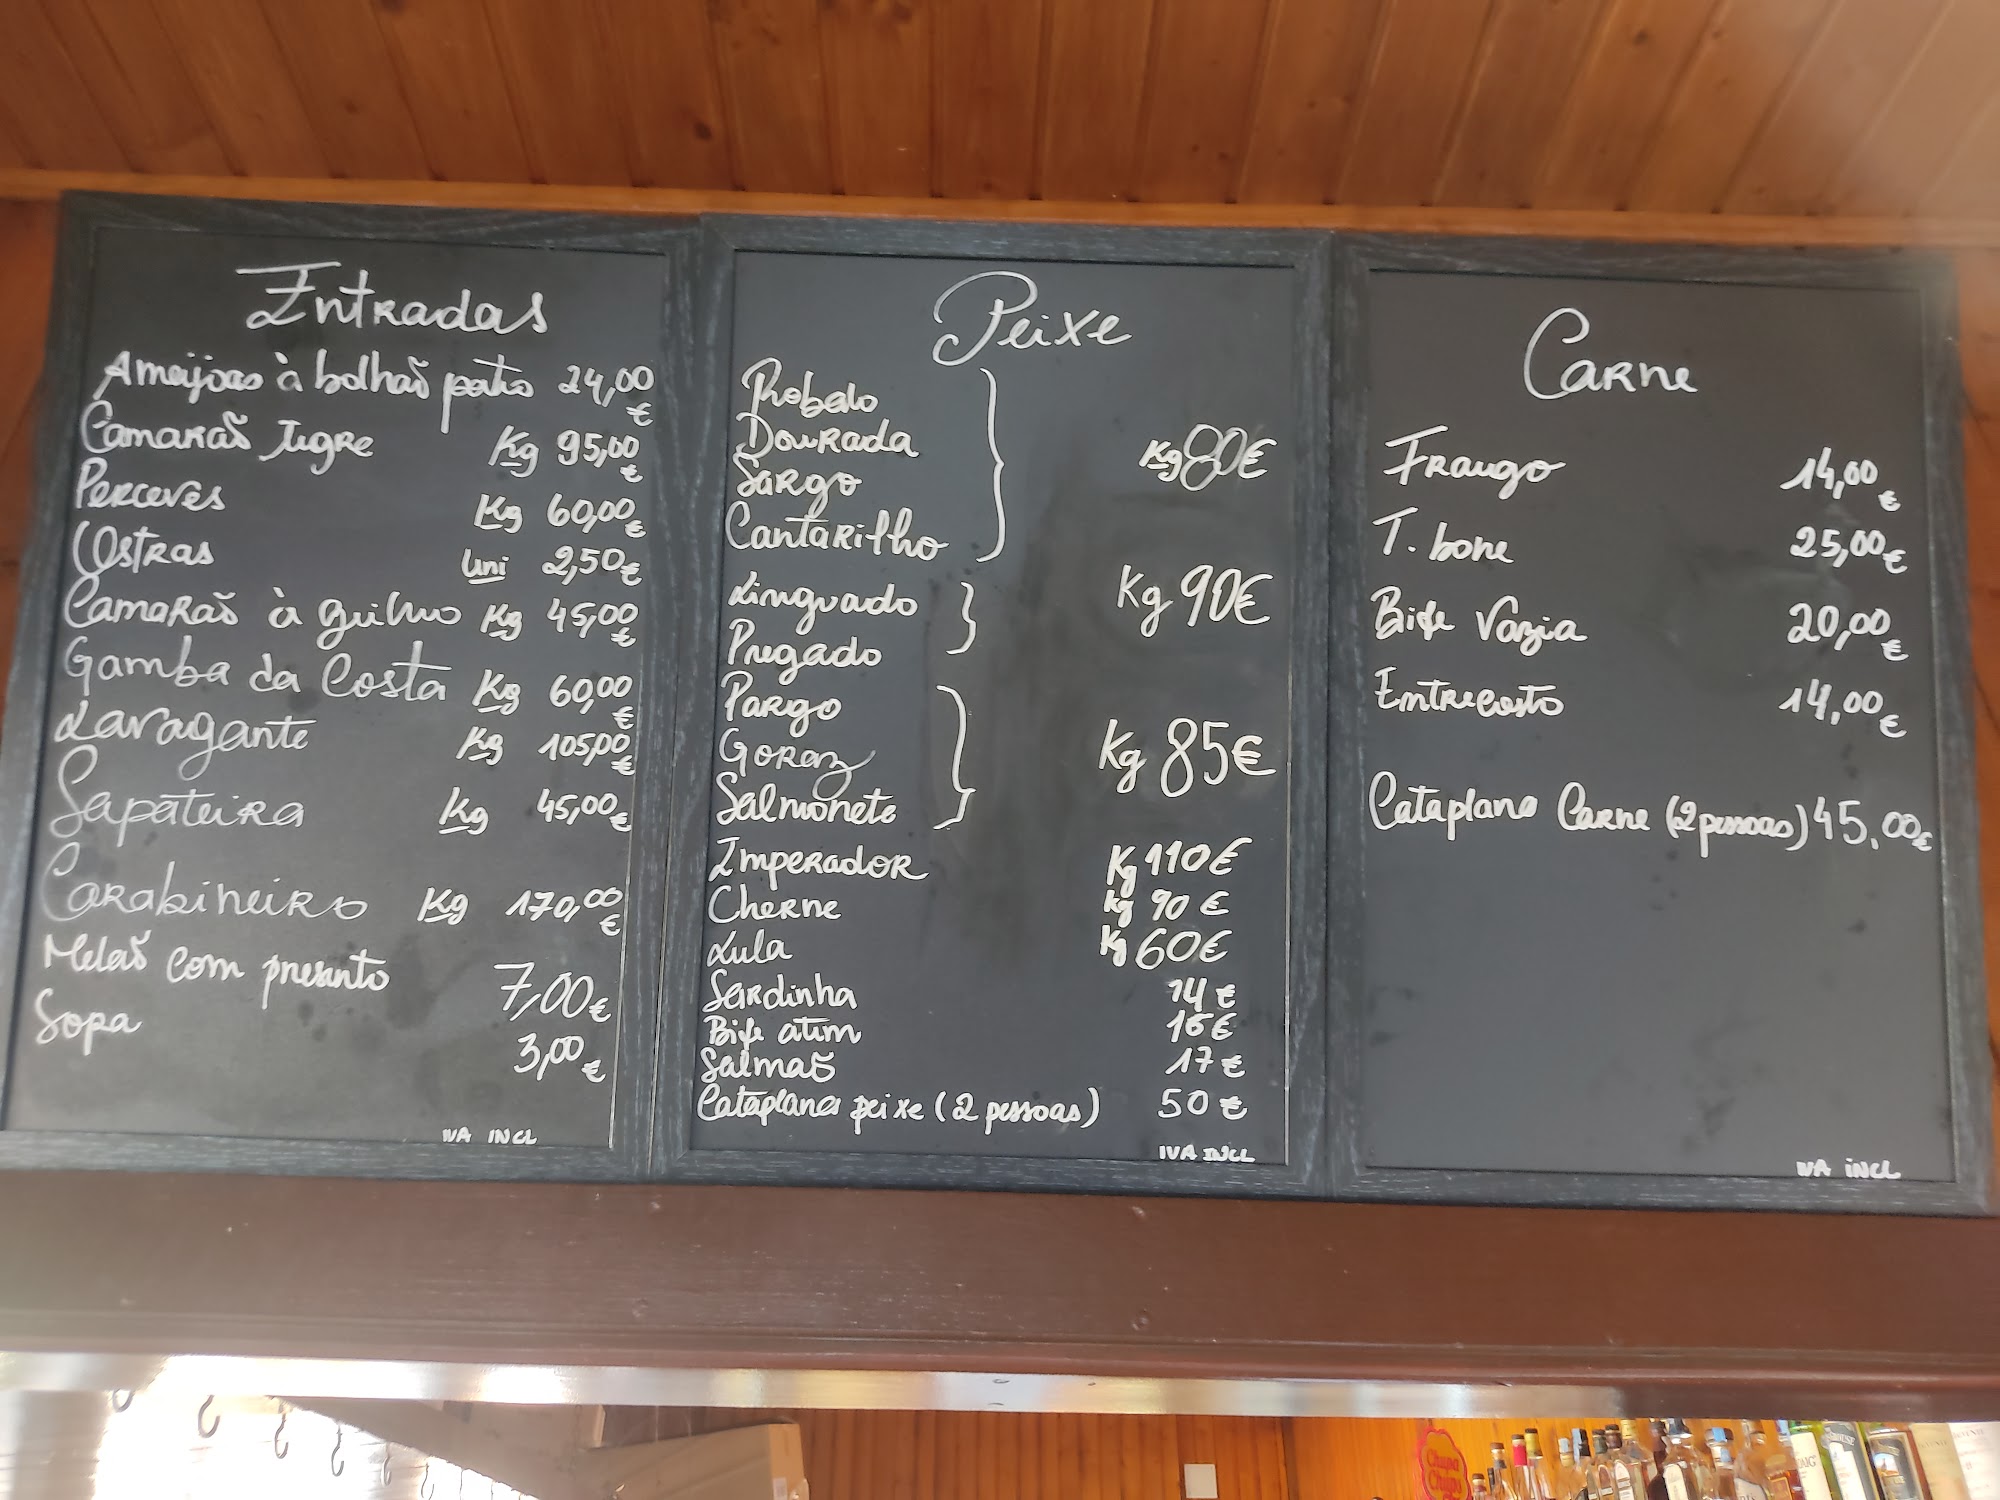 Entradas
Ameijoas à bolhão pato 24,00€
Camarão Tigre Kg 95,00€
Perceves Kg 60,00€
Ostras uni 2,50€
Camarão à guilho Kg 45,00€
Gamba da Costa Kg 60,00€
Lavagante Kg 105,00€
Sapateira Kg 45,00€
Carabineiro Kg 170,00€
Melão com presunto 7,00€
Sopa 3,00€
IVA INCL
Peixe
Robalo
Dourada
Sargo
Cantarilho
Kg 80€
Linguado
Pregado
Kg 90€
Pargo
Goraz
Salmonete
Kg 85€
Imperador Kg 110€
Cherne Kg 90€
Lula Kg 60€
Sardinha 14€
Bife atum 16€
Salmão 17€
Cataplana peixe (2 pessoas) 50€
IVA INCL
Carne
Frango 14,00€
T. bone 25,00€
Bife Vazia 20,00€
Entrecosto 14,00€
Cataplana Carne (2 pessoas) 45,00€
IVA INCL
Chupa
Chups